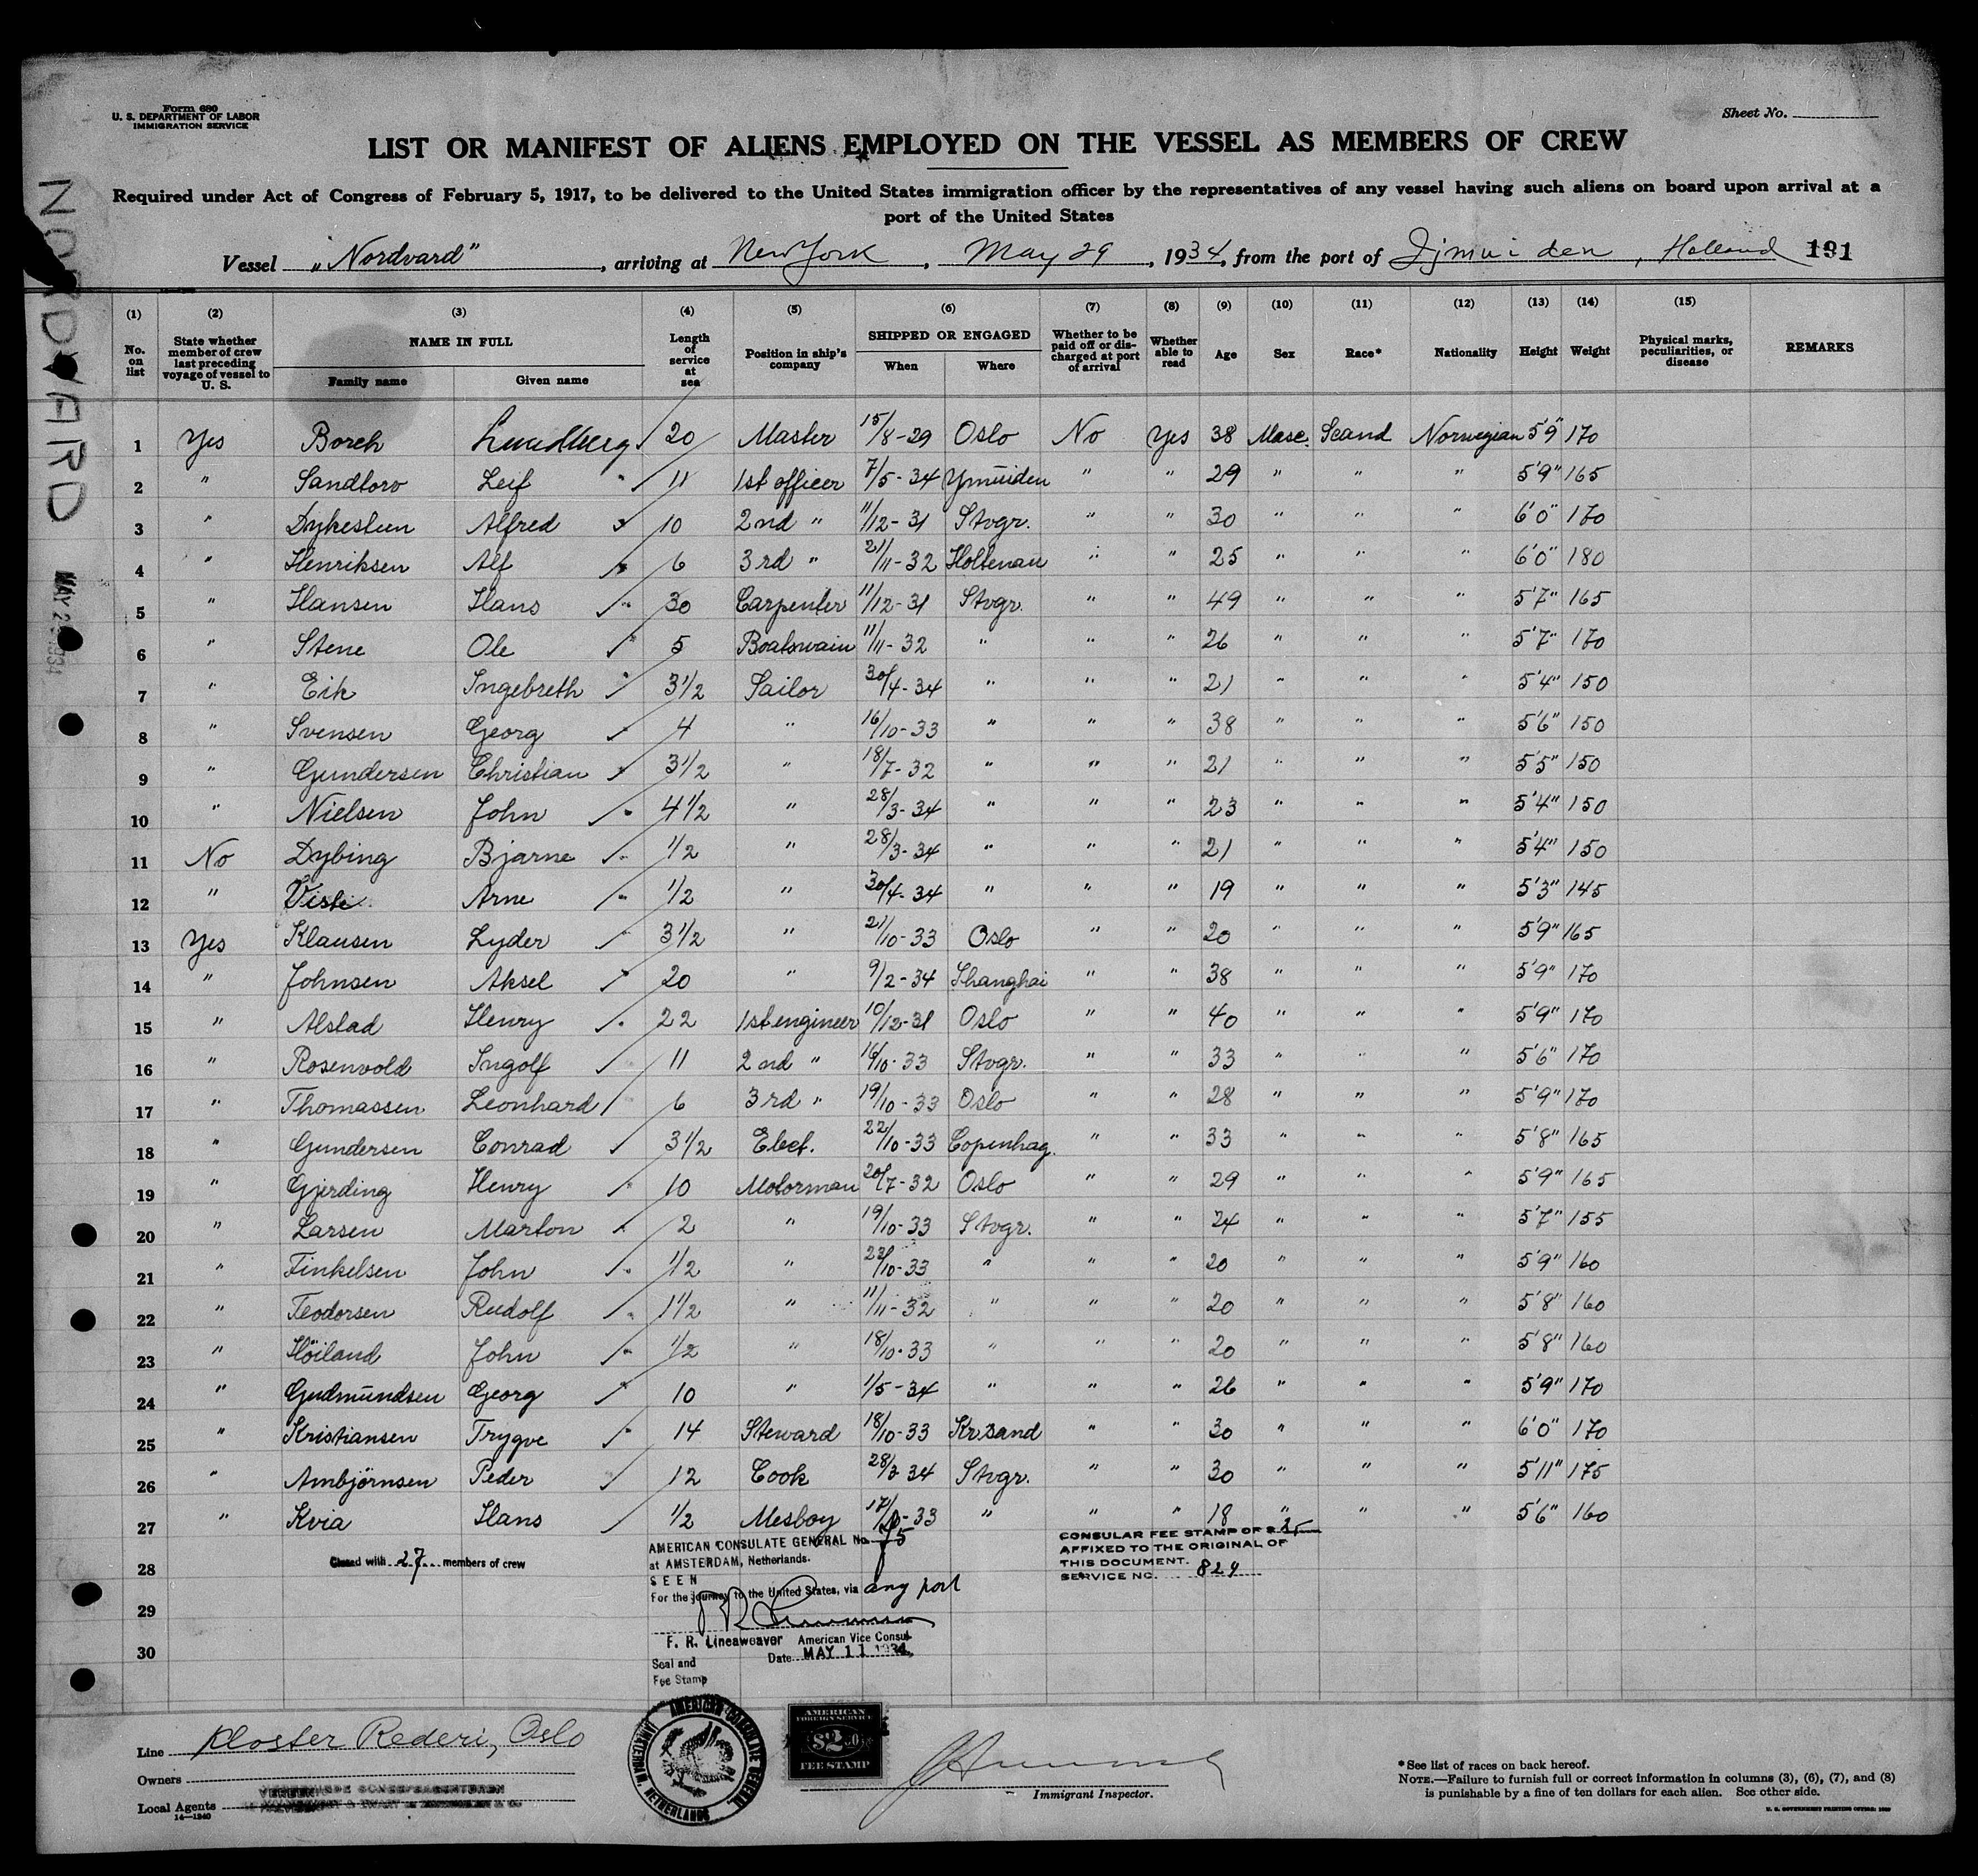 Form 680
U. S. DEPARTMENT OF LABOR
IMMIGRATION SERVICE
Sheet No.
LIST OR MANIFEST OF ALIENS EMPLOYED ON THE VESSEL AS MEMBERS OF CREW
Required under Act of Congress of February 5, 1917, to be delivered to the United States immigration officer by the representatives of any vessel having such aliens on board upon arrival at a
port of the United States
Vessel „Nordvard", arriving at New York, May 29, 1934, from the port of Ijmuiden, Holland 191
NORDVARD
(1) (2) (3) (4) (5) (6) (7) (8) (9) (10) (11) (12) (13) (14) (15)
No. on list | State whether member of crew last preceding voyage of vessel to U. S. | NAME IN FULL | Family name | Given name | Length of service at sea | Position in ship's company | SHIPPED OR ENGAGED | When | Where | Whether to be paid off or discharged at port of arrival | Whether able to read | Age | Sex | Race* | Nationality | Height | Weight | Physical marks, peculiarities, or disease | REMARKS
1 Yes Borch 20 Master 15/8-29 Oslo No Yes 38 Masc. Scand Norwegian 5'9" 170
2 " Sandtorv Leif 11 1st officer 7/5-34 Ymuiden " " 29 " " " 5'9" 165
3 " Dykesteen Alfred 10 2nd " 11/12-31 Stvgr. " " 30 " " " 6'0" 170
4 " Henriksen Alf 6 3rd " 21/11-32 Holtenau " " 25 " " " 6'0" 180
5 " Hansen Hans 30 Carpenter 11/12-31 Stvgr. " " 49 " " " 5'7" 165
6 " Stene Ole 5 Boatswain 11/11-32 " " " 26 " " " 5'7" 170
7 " Eik Ingebreth 3 1/2 Sailor 30/4-34 " " " 21 " " " 5'4" 150
8 " Svensen Georg 4 " 16/10-33 " " " 38 " " " 5'6" 150
9 " Gundersen Christian 3 1/2 " 18/7-32 " " " 21 " " " 5'5" 150
10 " Nielsen John 4 1/2 " 28/3-34 " " " 23 " " " 5'4" 150
11 No Dybing Bjarne 1/2 " 28/3-34 " " " 21 " " " 5'4" 150
12 " Viste Arne 1/2 " 30/4-34 " " " 19 " " " 5'3" 145
13 Yes Klausen Lyder 3 1/2 " 21/10-33 Oslo " " 20 " " " 5'9" 165
14 " Johnsen Aksel 20 " 9/2-34 Shanghai " " 38 " " " 5'9" 170
15 " Alstad Henry 22 1st engineer 10/12-31 Oslo " " 40 " " " 5'9" 170
16 " Rosenvold Ingolf 11 2nd " 16/10-33 Stvgr. " " 33 " " " 5'6" 170
17 " Thomassen Leonhard 6 3rd " 19/10-33 Oslo " " 28 " " " 5'9" 170
18 " Gundersen Conrad 3 1/2 Elect. 22/10-33 Copenhag. " " 33 " " " 5'8" 165
19 " Gjerding Henry 10 Motorman 20/7-32 Oslo " " 29 " " " 5'9" 165
20 " Larsen Marton 2 " 19/10-33 Stvgr. " " 24 " " " 5'7" 155
21 " Finkelsen John 1/2 " 23/10-33 " " " 20 " " " 5'9" 160
22 " Teodorsen Rudolf 1 1/2 " 11/11-32 " " " 20 " " " 5'8" 160
23 " Höiland John 1/2 " 18/10-33 " " " 20 " " " 5'8" 160
24 " Gudmundsen Georg 10 " 1/5-34 " " " 26 " " " 5'9" 170
25 " Kristiansen Trygve 14 Steward 18/10-33 Kr.sand " " 30 " " " 6'0" 170
26 " Ambjörnsen Peder 12 Cook 28/3 34 Stvgr. " " 30 " " " 5'11" 175
27 " Kvia Hans 1/2 Mesboy -33 " " " 18 " " " 5'6" 160
28
29
30
Closed with 27 members of crew
AMERICAN CONSULATE GENERAL No. 75
at AMSTERDAM, Netherlands.
SEEN
For the journey to the United States, via any port
F. R. Lineaweaver American Vice Consul
Date MAY 11 1934
Seal and
Fee Stamp
CONSULAR FEE STAMP OF $
AFFIXED TO THE ORIGINAL OF
THIS DOCUMENT.
SERVICE NO. 824
AMERICAN CONSULATE GENERAL
AMSTERDAM, NETHERLANDS
AMERICAN
FOREIGN SERVICE
$2.50
FEE STAMP
Line Kloster Rederi, Oslo
Owners
Local Agents
14—1240
Immigrant Inspector.
*See list of races on back hereof.
NOTE.—Failure to furnish full or correct information in columns (3), (6), (7), and (8)
is punishable by a fine of ten dollars for each alien. See other side.